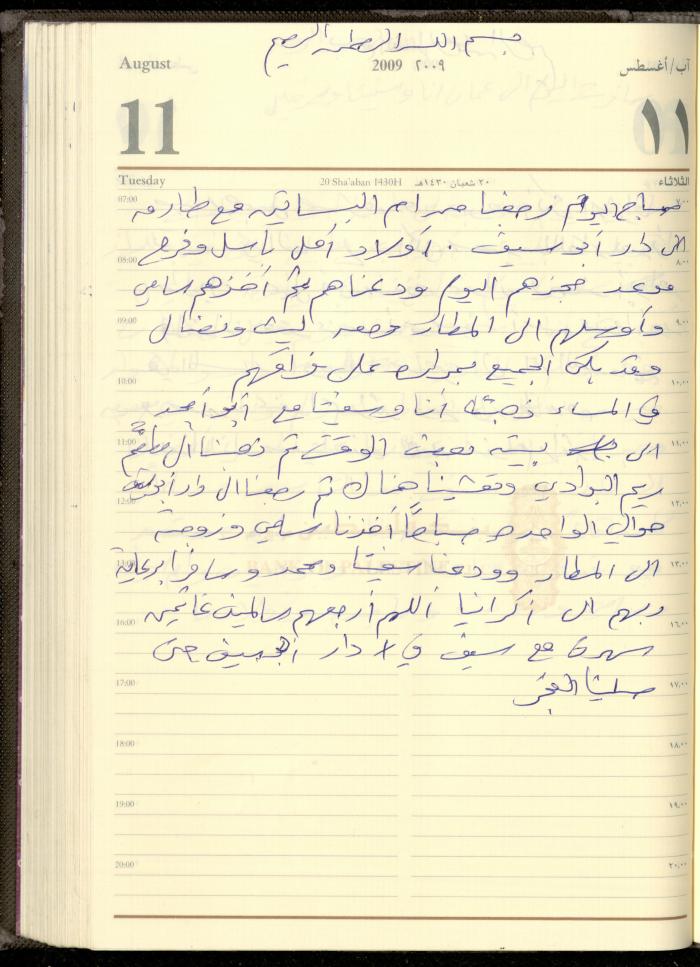 بسم الله الرحمن الرحيم
August 2009 ٢٠٠٩ آب/أغسطس
11 ١١
Tuesday 20 Sha'aban 1430H ٢٠ شعبان ١٤٣٠هـ الثلاثاء
07:00 صباح اليوم رجعنا من ام البساتين مع طارق ٧,٠٠
الى دار أبو سيف . أولاد أمل باسل وفرح
08:00 ٨,٠٠
موعد حجزهم اليوم ودعناهم ثم أخذهم سامي
09:00 وأوصلهم الى المطار ومعه ليث ونضال ٩,٠٠
وقد بكى الجميع بمرارة على فراقهم
10:00 ١٠,٠٠
في المساء ذهبت أنا وسفيتا مع أبو أحمد
11:00 الى بيته بعض الوقت ثم ذهبنا الى مطعم ١١,٠٠
ريم البوادي وتعشينا هناك ثم رجعنا الى دار أبو سيف
12:00 ١٢,٠٠
حوالي الواحدة صباحاً أخذنا سامي وزوجته
13:00 الى المطار وودعنا سفيتا ومحمد وسافرا برعاية ١٣,٠٠
ربهم الى اكرانيا اللهم أرجعهم سالمين غانمين
16:00 ١٦,٠٠
سهرنا مع سيف في دار أبو سيف حتى
17:00 صلينا الفجر ١٧,٠٠
18:00 ١٨,٠٠
19:00 ١٩,٠٠
20:00 ٢٠,٠٠